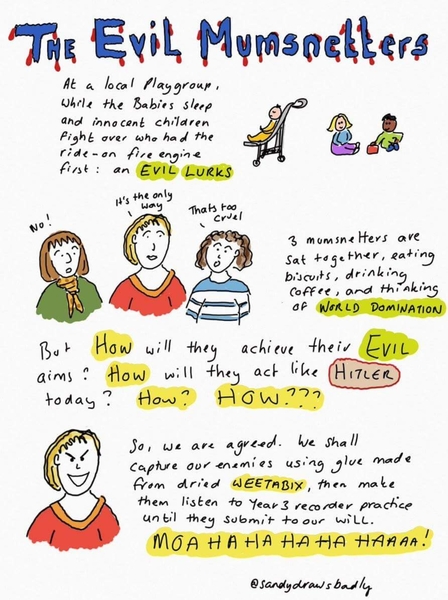 THE EVIL MUMSNETTERS
At a local Playgroup,
While the Babies sleep
and innocent children
fight over who had the
ride-on fire engine
first: an EVIL LURKS
NO!
It's the only
way
Thats too
cruel
3 mumsnetters are
sat together, eating
biscuits, drinking
coffee, and thinking
of WORLD DOMINATION
But How will they achieve their EVIL
aims? How will they act like HITLER
today? How? HOW???
So, we are agreed. We shall
capture our enemies using glue made
from dried WEETABIX, then make
them listen to Year 3 recorder practice
until they submit to our will.
MOA HA HA HA HA HAAAA!
@sandydrawsbadly